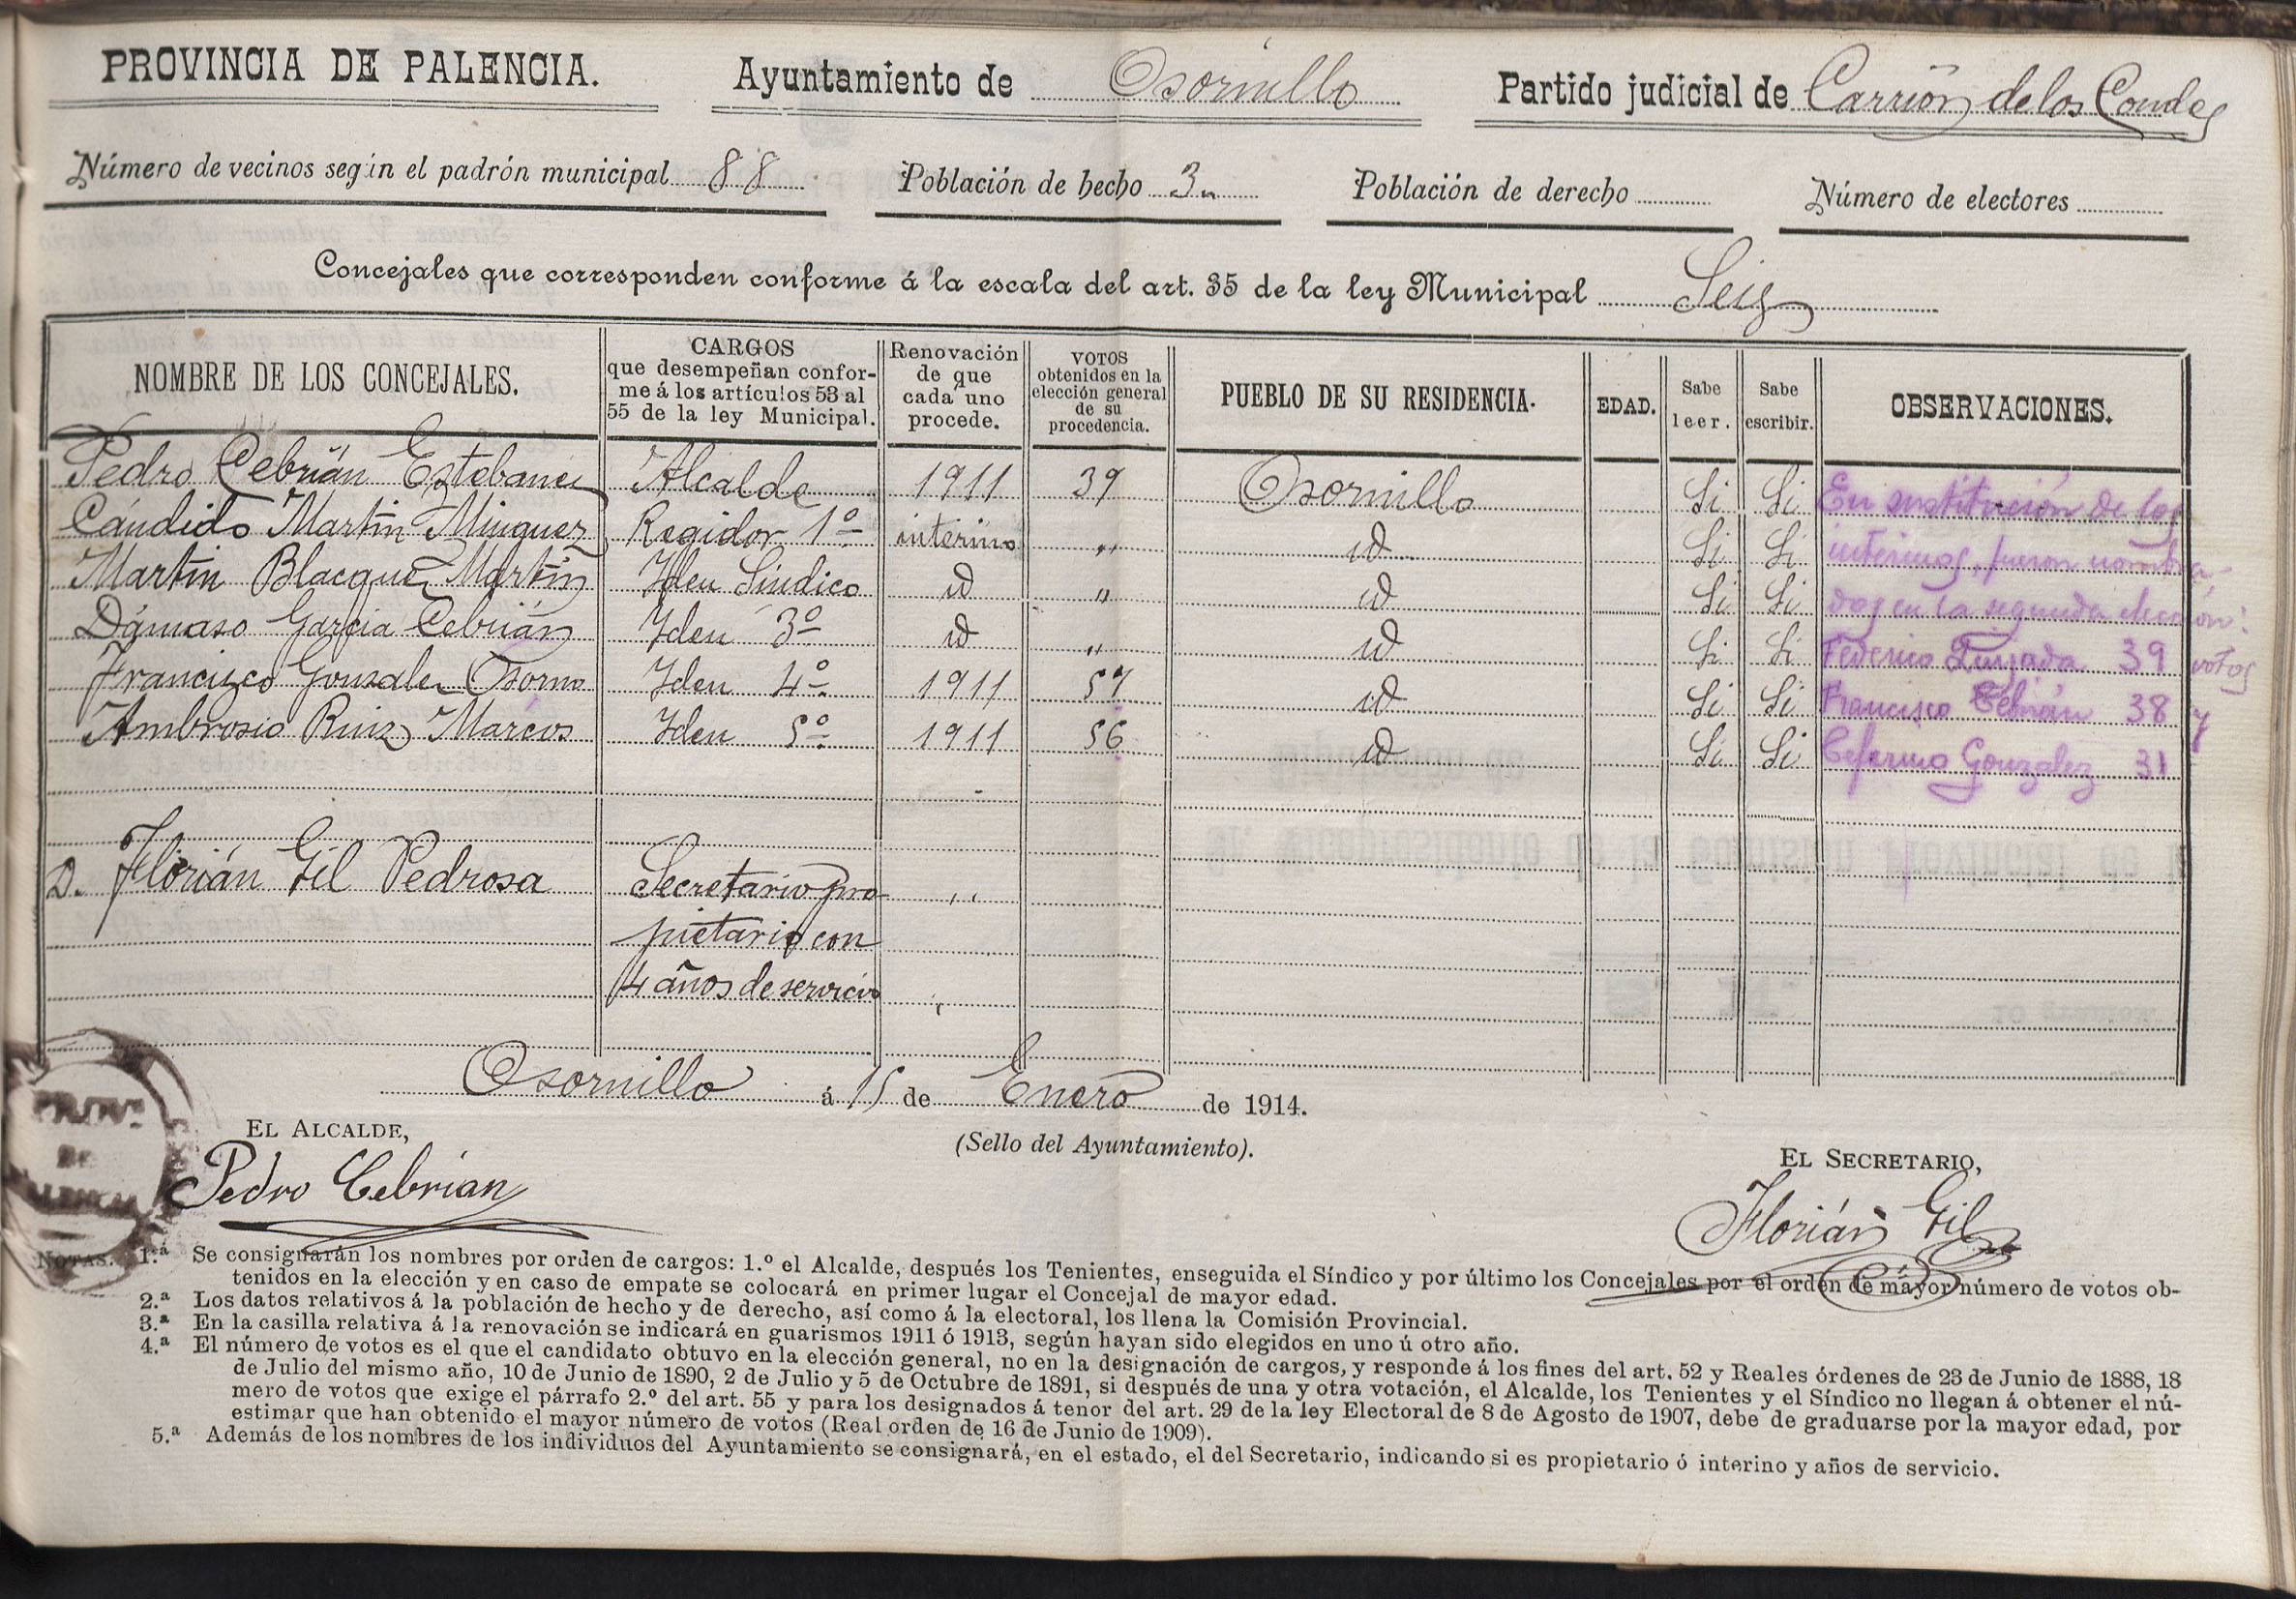 PROVINCIA DE PALENCIA. Ayuntamiento de Osornillo Partido judicial de Carrión de los Condes
Número de vecinos según el padrón municipal 88 Población de hecho Población de derecho Número de electores
Concejales que corresponden conforme á la escala del art. 35 de la ley Municipal Seis
NOMBRE DE LOS CONCEJALES. CARGOS que desempeñan confor-me á los artículos 53 al 55 de la ley Municipal. Renovación de que cada uno procede. VOTOS obtenidos en la elección general de su procedencia. PUEBLO DE SU RESIDENCIA. EDAD. Sabe leer. Sabe escribir. OBSERVACIONES.
Pedro Cebrián Estebanez Alcalde 1911 39 Osornillo Si Si En sustitución de los
Cándido Martín Minguez Regidor 1º interino " id Si Si interinos, fueron nombra-
Martín Blacquez Martín Iden Sindico id " id Si Si dos en la segunda elección:
Dámaso García Cebrián Iden 3º id " id Si Si Federico Quijada 39 votos
Francisco Gonzalez Osorno Iden 4º 1911 57 id Si Si Francisco Cebrián 38 y
Ambrosio Ruiz Marcos Iden 5º 1911 56 id Si Si Ceferino González 31
D. Florián Gil Pedrosa Secretario pro "
pietario con
4 años de servicio
Osornillo á 15 de Enero de 1914.
EL ALCALDE,
(Sello del Ayuntamiento).
EL SECRETARIO,
Pedro Cebrián
Florián Gil
NOTAS. 1.ª Se consignarán los nombres por orden de cargos: 1.º el Alcalde, después los Tenientes, enseguida el Síndico y por último los Concejales por el orden de mayor número de votos ob-
tenidos en la elección y en caso de empate se colocará en primer lugar el Concejal de mayor edad.
2.ª Los datos relativos á la población de hecho y de derecho, así como á la electoral, los llena la Comisión Provincial.
3.ª En la casilla relativa á la renovación se indicará en guarismos 1911 ó 1913, según hayan sido elegidos en uno ú otro año.
4.ª El número de votos es el que el candidato obtuvo en la elección general, no en la designación de cargos, y responde á los fines del art. 52 y Reales órdenes de 23 de Junio de 1888, 18
de Julio del mismo año, 10 de Junio de 1890, 2 de Julio y 5 de Octubre de 1891, si después de una y otra votación, el Alcalde, los Tenientes y el Síndico no llegan á obtener el nú-
mero de votos que exige el párrafo 2.º del art. 55 y para los designados á tenor del art. 29 de la ley Electoral de 8 de Agosto de 1907, debe de graduarse por la mayor edad, por
estimar que han obtenido el mayor número de votos (Real orden de 16 de Junio de 1909).
5.ª Además de los nombres de los individuos del Ayuntamiento se consignará, en el estado, el del Secretario, indicando si es propietario ó interino y años de servicio.